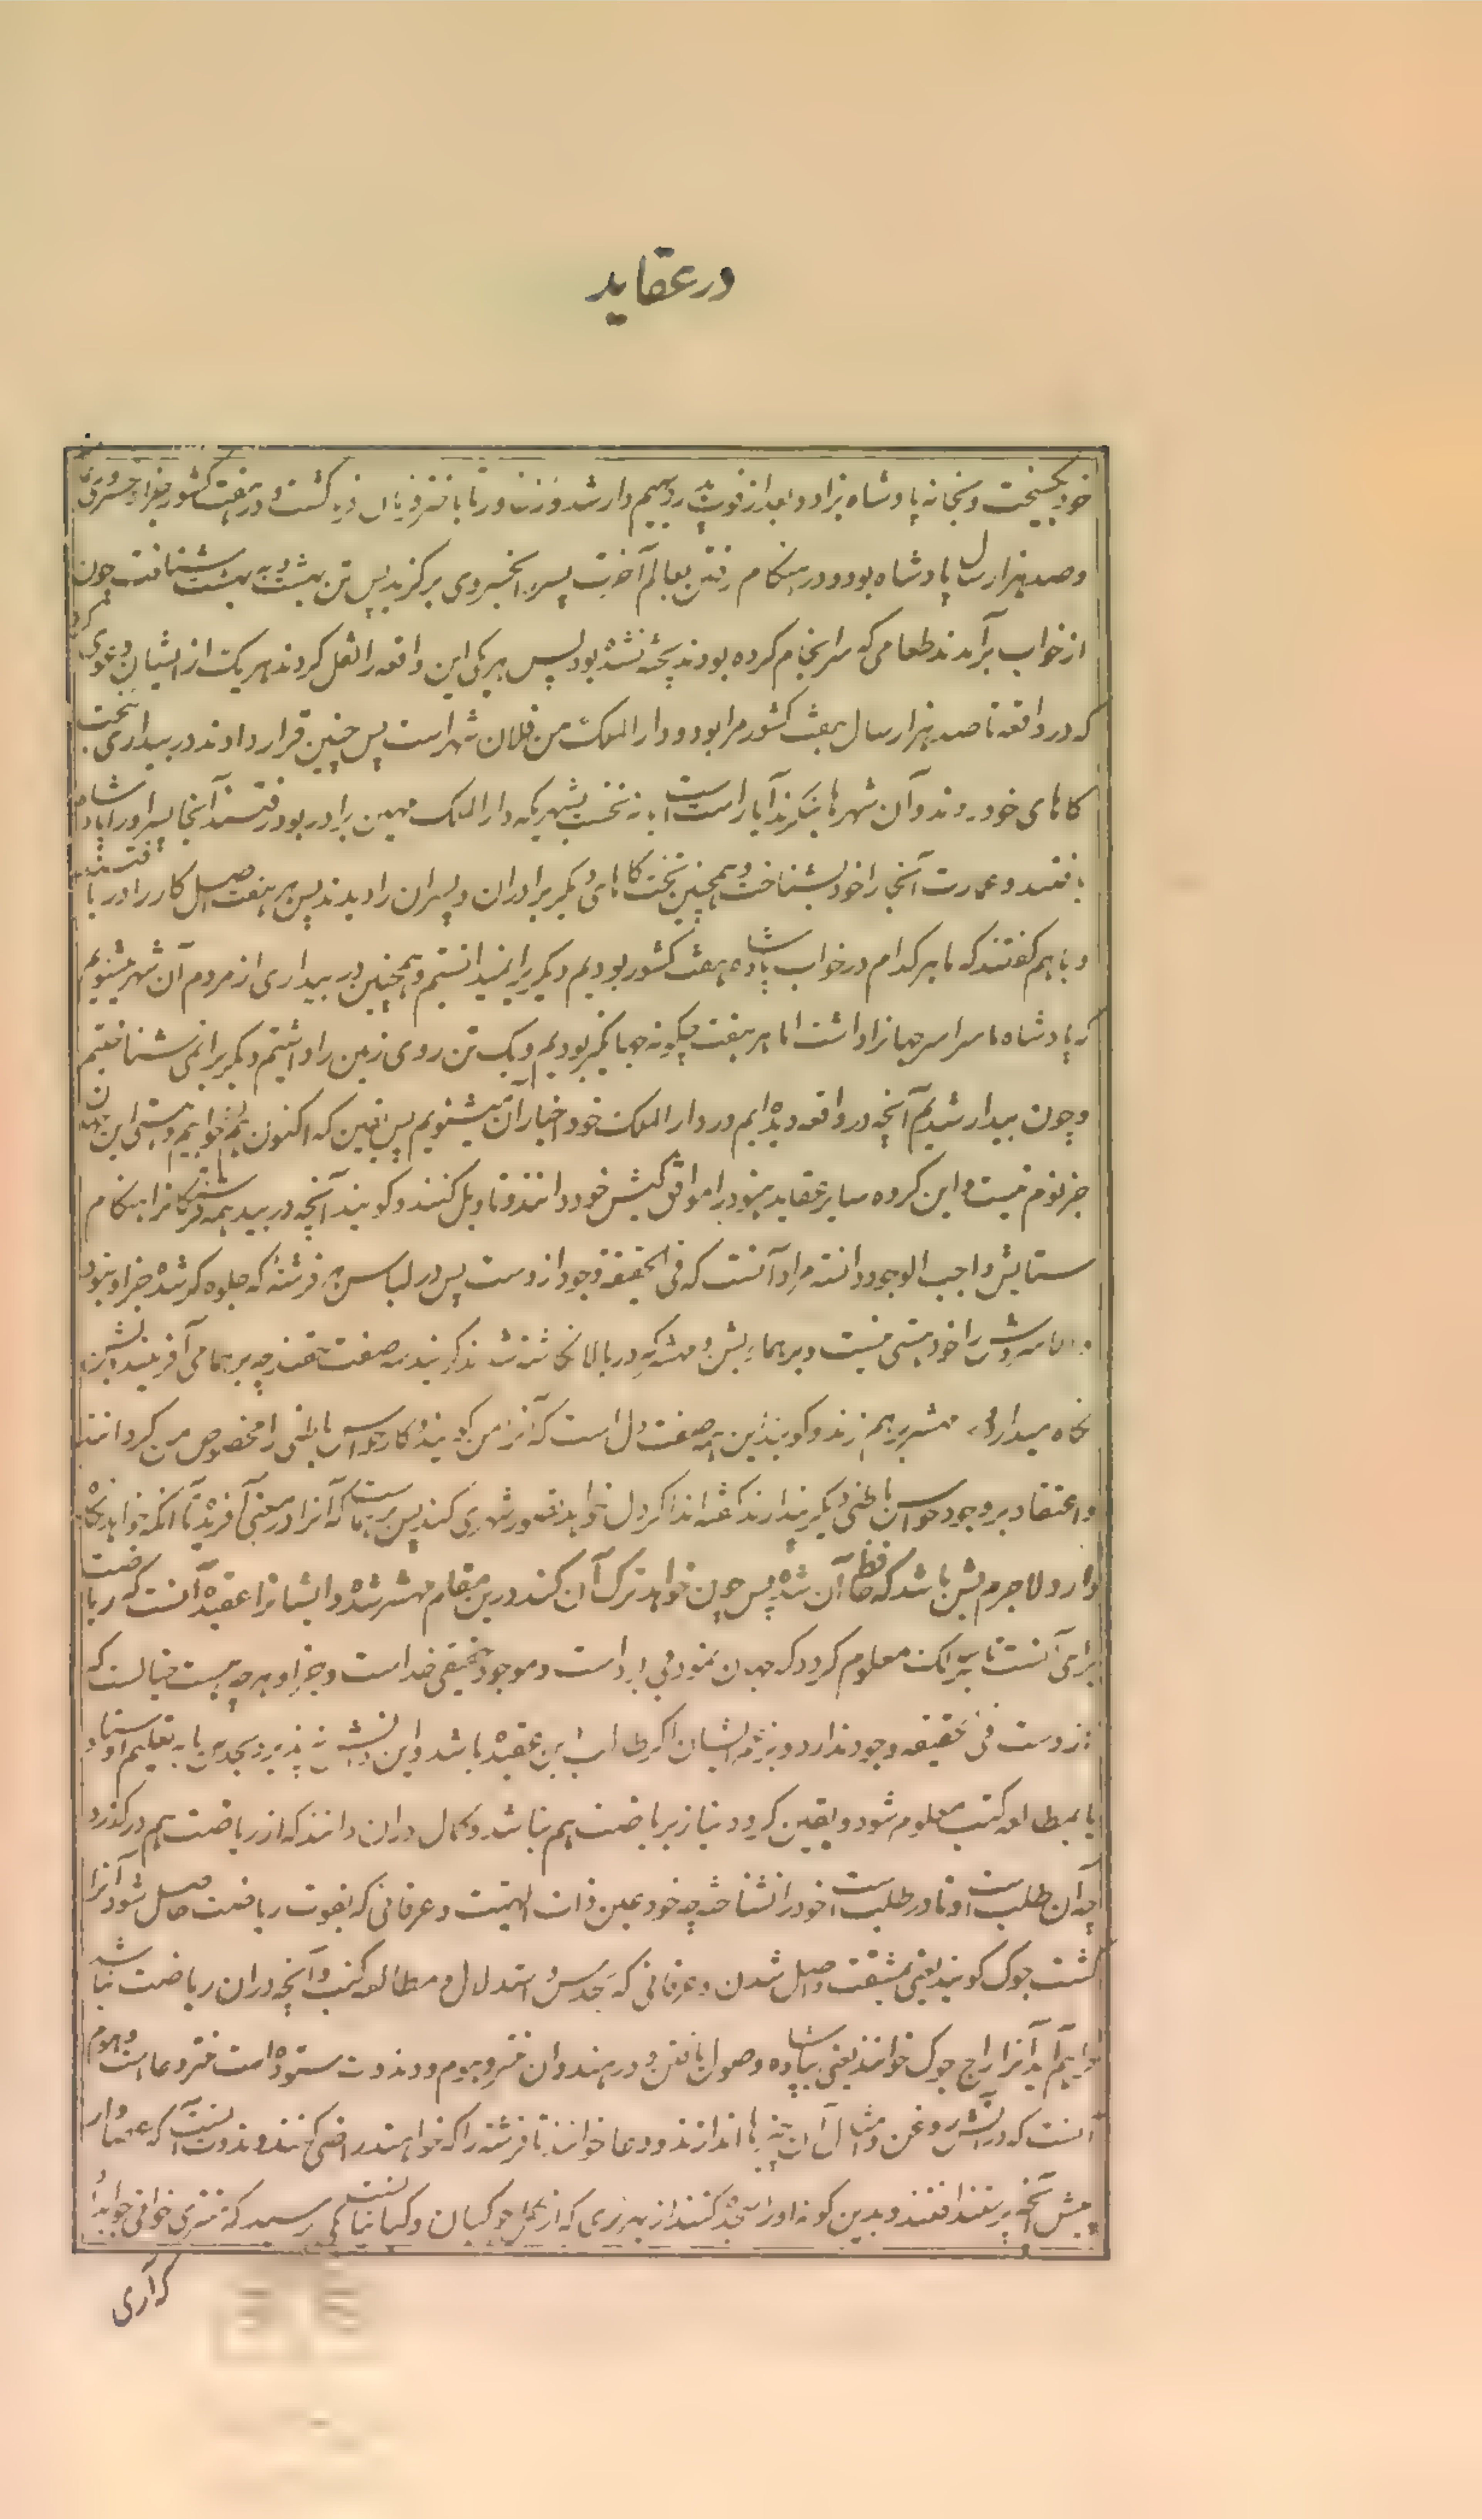 در عقاید
خود بگسیخت و بخانه پادشاه بزاد و بعد از فوت پدر دیهیم دار شد و زنان و در هفت کشور
و صد هزار سال پادشاه بود و در هنگام رفتن بعالم آخرت پسر را بخسروی برگزید پس تن بهشته به بهشت شتافت چون
از خواب برآمدند طعامی که سرانجام کرده بودند پخته نشده بود پس هر یکی این واقعه را نقل کردند هر یک از ایشان دعوی کرد
که در واقعه تا صد هزار سال هفت کشور مرا بود و دار الملک من فلان شهر است پس چنین قرار دادند در بیداری بتخت
گاهای خود روند و آن شهرها بنگرند آیا راست است یا نه نخست بشهریکه دار الملک مهین برادر بود رفتند آنجا پسر او را پادشاه
یافتند و عمارت آنجا را خود بشناخت و همچنین تخت گاهای دیگر برادران و پسران را دیدند پس هر هفت اصل کار را دریافتند
و باهم گفتند که ما هر کدام در خواب پادشاه هفت کشور بودیم و دیگریرا نمیدانستیم و همچنین در بیداری از مردم آن شهر میشنویم
که پادشاه ما سراسر جهانرا داشت اما هر هفت چگونه جهانگیر بودیم و یک تن روی زمین را داشتیم و دیگریرا نمی شناختیم
و چون بیدار شدیم آنچه در واقعه دیده ایم در دار الملک خود اخبار آن میشنویم پس یقین که اکنون هم بخوابیم و هستی این جهان
جز نوم نیست و این گروه سایر عقاید هنود را موافق کیش خود دانند و تاویل کنند و گویند آنچه در بید همه فرشتگانرا هنگام
ستایش واجب الوجود دانسته مراد آنست که فی الحقیقة وجود ازوست پس در لباس هر فرشته که جلوه گر شده جز او نبود
را خود هستی نیست و برهما و بشن و مهیش که در بالا گذشتند گویند سه صفت چه برهما می آفریند بشن
نگاه میدارد و مهیش برهم زند و گویند این سه صفت دل است که آنرا من گویند و کار حواس باطنی را مخصوص من گردانند
و اعتقاد بر وجود حواس باطنی دیگر ندارند گفته اند اگر دل خواهد تصور شهری کند پس برهماست که آنرا در معنی آفرید تا آنکه خواهد نگاه
دارد لاجرم بشن باشد که حافظ آن شده پس چون خواهد ترک آن کند درین مقام مهیش شد و ایشانرا عقیده آنست که ریاضت
برای آنست تا سالک معلوم گردد که جهان نمود بی بود است و موجود حقیقی خداست و جز او هر چه هست خیالست که
ازوست فی حقیقه وجود ندارد و نزد ایشان اگر طالب این عقیده باشد و این بپذیرد بجد یا به تعلیم اوستاد
یا بمطالعه کتب معلوم شود و یقین گردد نیاز بریاضت هم نباشد و کمال دران دانند که از ریاضت هم درگذرد
چه آن طلب است و تا در طلب است خود را نشناخته چه خود عین ذات الهیست و عرفانی که بقوت ریاضت حاصل شود آنرا
کشت جوگ گویند یعنی بمشقت واصل شدن و عرفانی که بحدس و استدلال و مطالعه کتب و آنچه دران ریاضت نباشد
فراهم آید آنرا راج جوگ خوانند یعنی پادشاهانه وصول یافتن و در هندوان منتر و هوم و دندوت ستوده است منتر دعا است و هوم
آنست که در آتش روغن و امثال آن اندازند و دعا خوانند تا فرشته را که خواهند راضی کنند و دندوت آنست که عصا وار
پیش آنچه پرستند افتند و بدین گونه او را سجده کنند از که از کمل جوگیان و گیانیانست می پرسید که منتر خوانی جواب داد
که آری